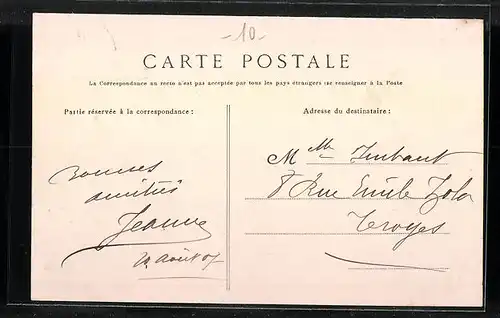 -10-
CARTE POSTALE
La Correspondance au recto n'est pas acceptée par tous les pays étrangers (se renseigner à la Poste
Partie réservée à la correspondance :
Adresse du destinataire :
Bonnes
amitiés
Jeanne
août 07
Mlle Imbault
8 Rue Emile Zola
Troyes